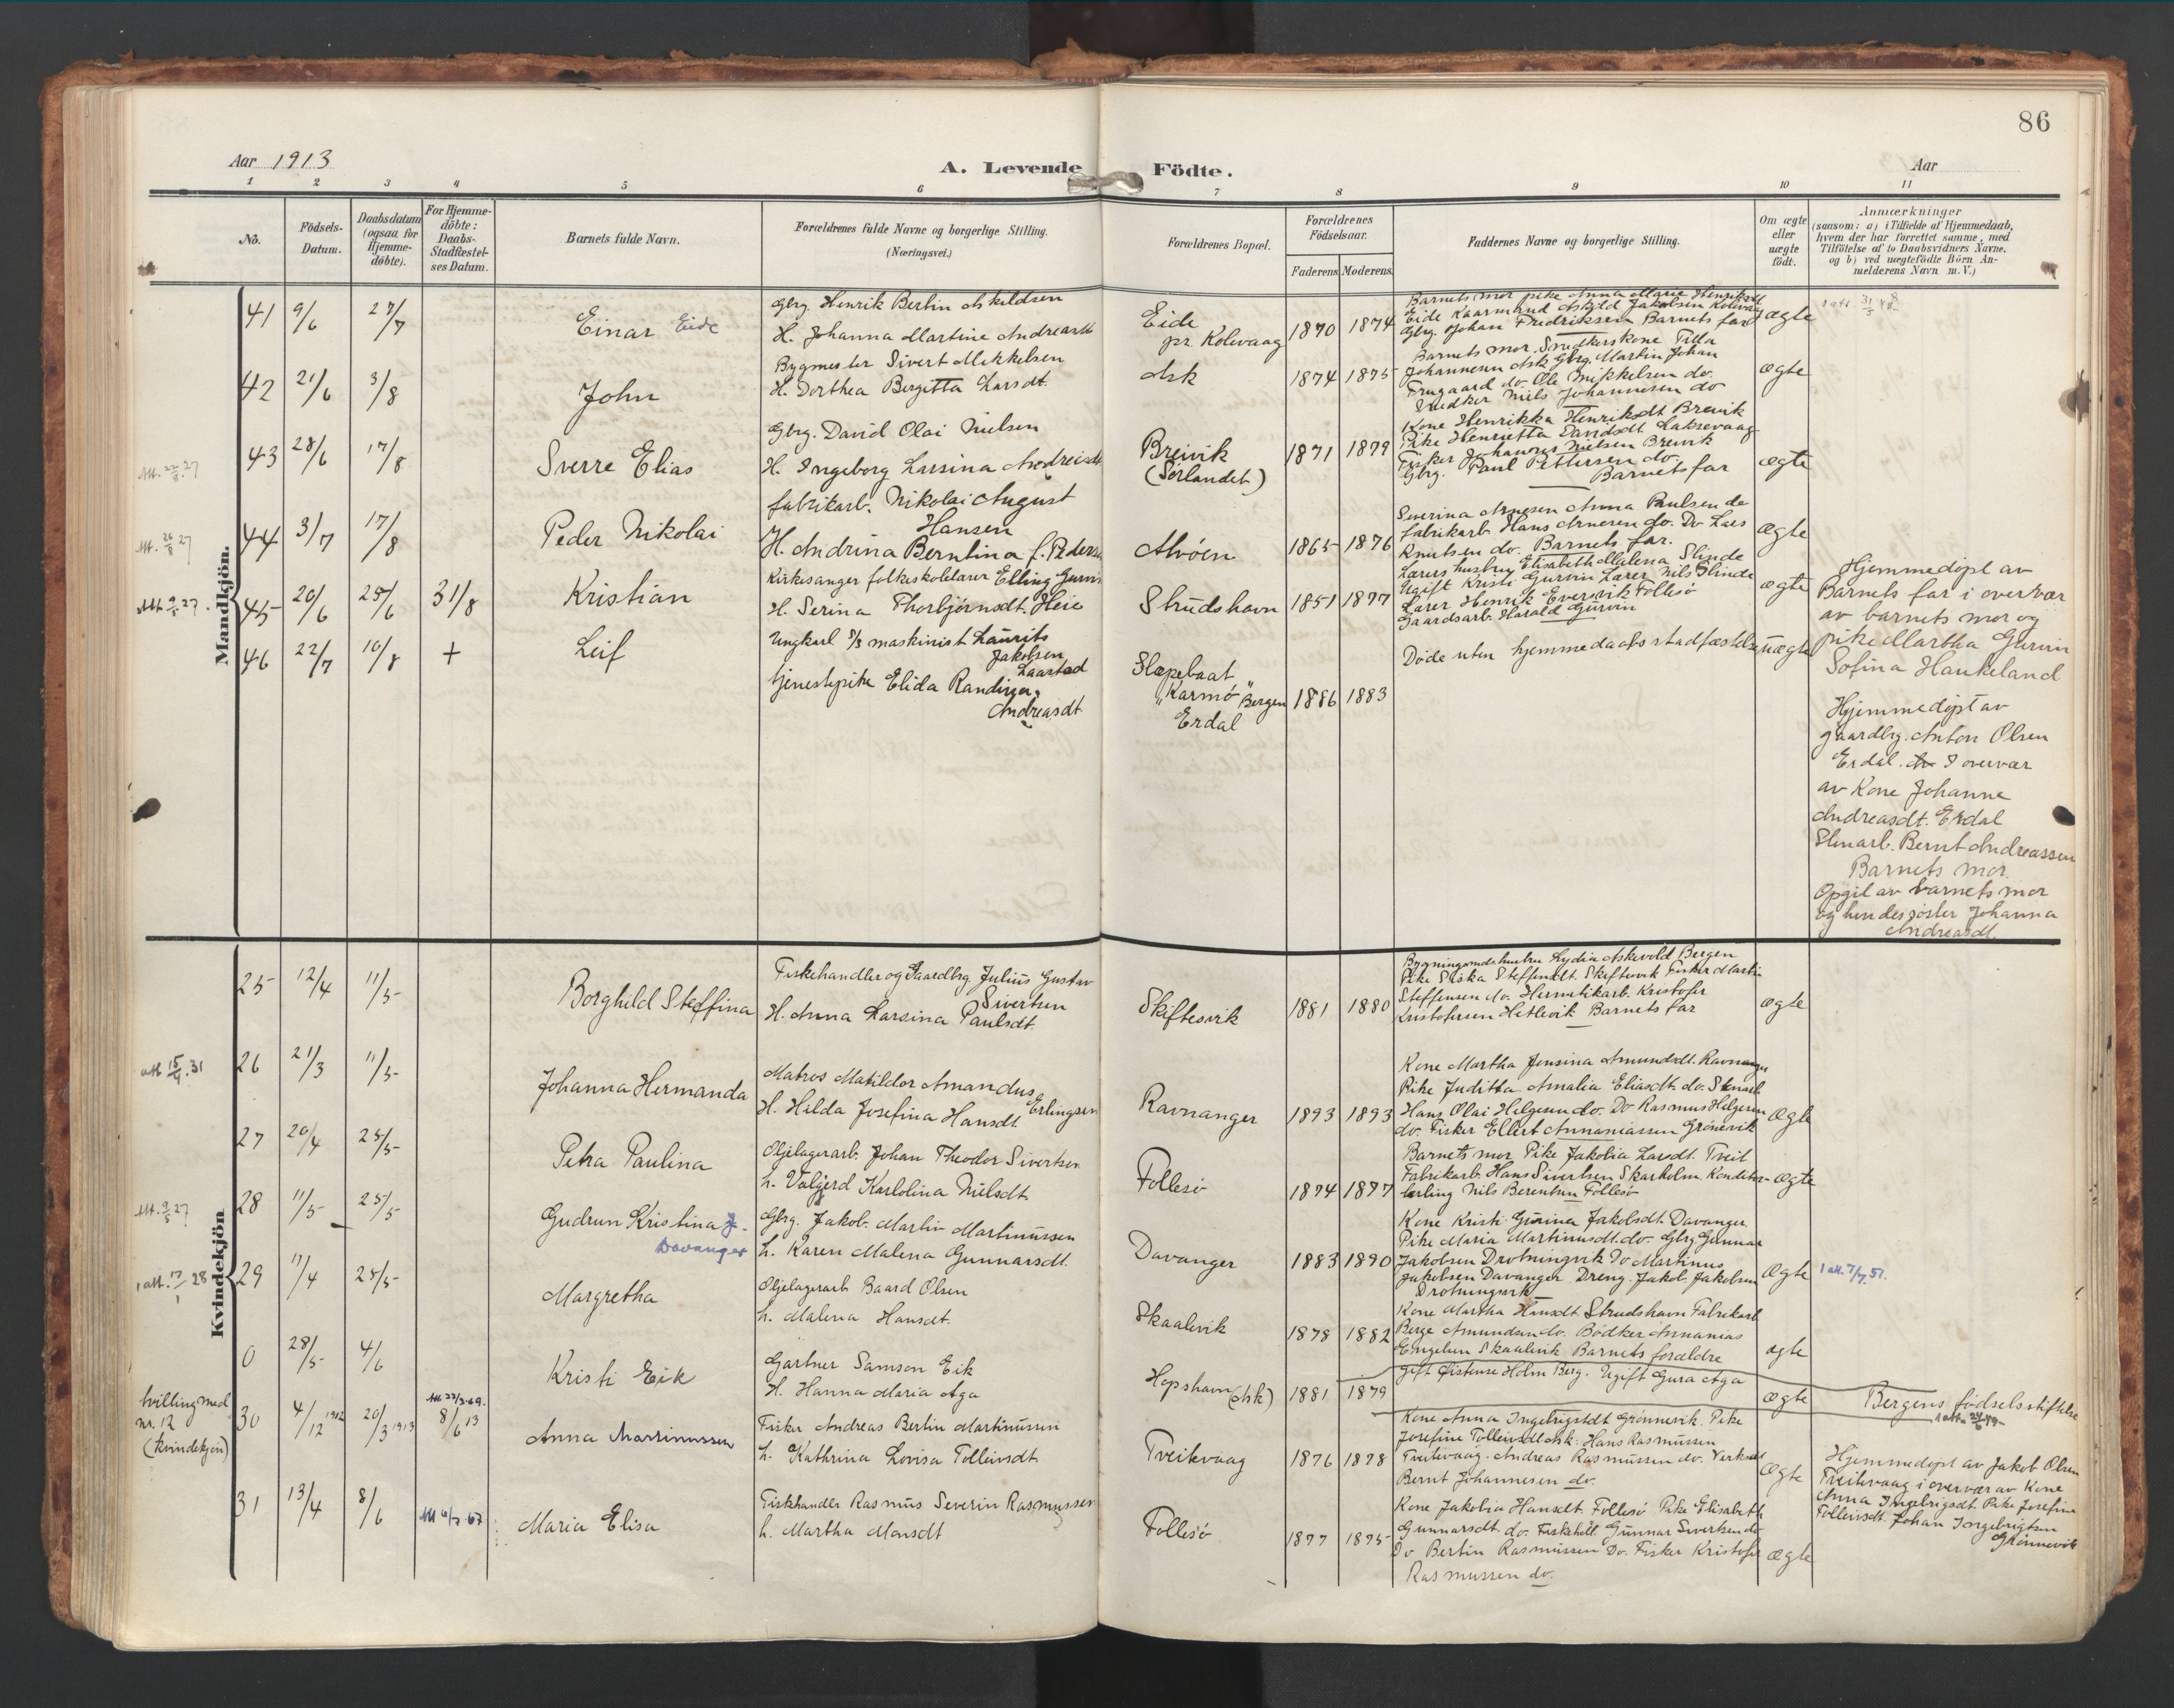 86
Aar 1913
A. Levende Födte.
Aar
1 2 3 4 5 6 7 8 9 10 11
No.
Födsels-Datum.
Daabsdatum (ogsaa for Hjemme-döbte).
For Hjemme-döbte: Daabs-Stadfæstel-ses Datum.
Barnets fulde Navn.
Forældrenes fulde Navne og borgerlige Stilling.
(Næringsvei.)
Forældrenes Bopæl.
Forældrenes Födselsaar.
Faderens Moderens
Faddernes Navne og borgerlige Stilling.
Om ægte eller uægte födt.
Anmærkninger
(saasom: a) i Tilfælde af Hjemmedaab,
hvem der har forrettet samme, med
Tilföielse af to Daabsvidners Navne.
og b) ved uægtefödte Börn An-
melderens Navn m. V.)
Mandkjön.
41 9/6 27/7 Einar Eide
Gbrg. Henrik Bertin Askildsen
H. Johanna Martine Andreasdt
Eide
pr Kolevaag
1870 1874
Barnets mor pike Anna Marie Henriksdt
Eide Kaarmand Askild Jakobsen Kolevaag
Gbrg. Johan Fredriksen Barnets far
ægte
42 21/6 3/8 John
Bygmester Sivert Mikkelsen
H. Dorthea Bergitta Larsdt.
Ask
1874 1875
Barnets mor. Snedkerskone Tilla
Johannesen Ask Gbrg. Martin Johan
Frugaard do. Ole Mikkelsen do.
Snedker Niels Johannesen do
ægte
Att. 22/8 27
43 28/6 17/8 Sverre Elias
Gbrg. David Olai Nielsen
H. Ingeborg Larsina Andreisdt
Breivik
(Sørlandet)
1871 1879
Kone Henrikka Henriksdt Breivik
Pike Henrietta Davidsdt Laksevaag
Fisker Johannes Nielsen Breivik
Gbrg. Paul Pettersen do.
Barnets far
ægte
Att. 26/8 27
44 3/7 17/8 Peder Nikolai
fabrikarb. Nikolai August
Hansen
H. Andrina Berntina f. Peders
Alvöen
1865 1876
Severina Arnesen Anna Paulsen do
fabrikarb. Hans Arnesen do. Do Lars
Knutsen do. Barnets far.
ægte
Att. 9/5 27.
45 20/6 25/6 31/8 Kristian
Kirkesanger folkeskolelærer Elling Gurvin
H. Serina Thorbjörnsdt. Heie
Strudshavn
1851 1877
Lærers hustru Elisabeth Malena Slinde
Ugift Kristi Gurvin Lærer Nils Slinde
Lærer Henrik Eversvik Follesö
Gaardsarb. Harald Gurvin
ægte
Hjemmedöpt av
Barnets far i overvær
av barnets mor og
pike Martha Gurvin
Sofina Haukeland
46 22/7 10/8 + Leif
Ungkarl s/s maskinist Laurits
Jakobsen
Laastad
tjenestepike Elida Randine
Andreasdt
Slæpebaat
"Karmö" Bergen
Erdal
1886 1883
Döde uten hjemmedaabsstadfæstelse
uægte
Hjemmedöpt av
gaardbrg. Anton Olsen
Erdal. I overvær
av Kone Johanne
Andreasdt. Erdal
Stenarb. Bernt Andreassen
Barnets mor.
Opgit av barnets mor
og hendes söster Johanna
Andreasdt.
Kvindekjön
25 12/4 11/5 Borghild Steffina
Fiskehandler og Gaardbrg Julius Gustav
Sivertsen
H. Anna Larsina Paulsdt
Skiftesvik
1881 1880
Bygningsmds hustru Lydia Askevold Bergen
Pike Siska Steffensdt. Skiftesvik Fisker Martin
Steffensen do. Hermetikarb. Kristofer
Kristofersen Hetlevik Barnets far
ægte
att 15/4 31
26 21/3 11/5 Johanna Hermanda
Matros Matildor Amandus
Erlingsen
H. Hilda Josefina Hansdt
Ravnanger
1893 1893
Kone Martha Jensina Amundsdt. Ravnanger
Pike Juditta Amalia Eliasdt do. Stenarb
Hans Olai Helgesen do. Do Rasmus Helgesen
do. Fisker Ellert Annaniassen Grönevik
ægte
27 20/4 25/5 Petra Paulina
Oljelagerarb. Johan Theodor Sivertsen
h. Valgjerd Karlolina Nielsdt
Follesö
1874 1877
Barnets mor Pike Jakobia Larsdt. Tveit
Fabrikarb. Hans Sivertsen Skarholm. Konditor-
lærling Nils Berentsen Follesö
ægte
Att. 9/5 27
28 11/5 25/5 Gudrun Kristina J.
Davanger
Gbrg. Jakob. Martin Martinussen
h. Karen Malena Gunnarsdt.
Davanger
1883 1890
Kone Kristi Gurina Jakobsdt. Davanger
Pike Maria Martinusdt. do. Gbrg. Gunnar
Jakobsen Drotningvik Do Martinus
Jakobsen Davanger. Dreng. Jakob Jakobsen
Drotningvik
ægte
1 att. 7/7 51.
1 att. 17/1 28
29 17/4 25/5 Margretha
Oljelagerarb Baard Olsen
h. Malena Hansdt.
Skaalevik
1878 1882
Kone Martha Hansdt Strudshavn Fabrikarb
Berge Amundsen do. Bödker Annanias
Engelsen Skaalevik Barnets forældre
ægte
0 28/5 4/6 Kristi Eik
Gartner Samson Eik
H. Hanna Maria Aga
Hopshavn (Ask)
1881 1879
Gift Holm Berg. Ugift Gura Aga
ægte
Bergens födselsstiftelse
tvilling med
nr. 12
(kvindekjön)
30 4/12 1912 20/3 1913 8/6 13 Anna Martinussen
Fisker Andreas Bertin Martinussen
h. Kathrina Lovisa Tolleivsdt
Tveitevaag
1876 1878
Kone Anna Ingebrigtsdt Grönnevik. Pike
Josefine Tolleivsdt Ask. Hans Rasmussen
Tveitevaag. Andreas Rasmussen do.
Bernt Johannesen do.
ægte
Hjemmedöpt av Jakob Olsen
Tveitevaag i overvær av Kone
Anna Ingebrigsdt. Pike Josefine
Tolleivsdt. Johan Ingebrigtsen
Grönnevik
31 13/4 8/6 Maria Elisa
Fiskhandler Rasmus Severin Rasmussen
h. Martha Monsdt
Follesö
1877 1875
Kone Jakobia Hansdt. Follesö Pike Elisabeth
Gunnarsdt. do. Gunnar Sivertsen do
Do Bertin Rasmussen Do. Fisker Kristofer
Rasmussen do.
ægte